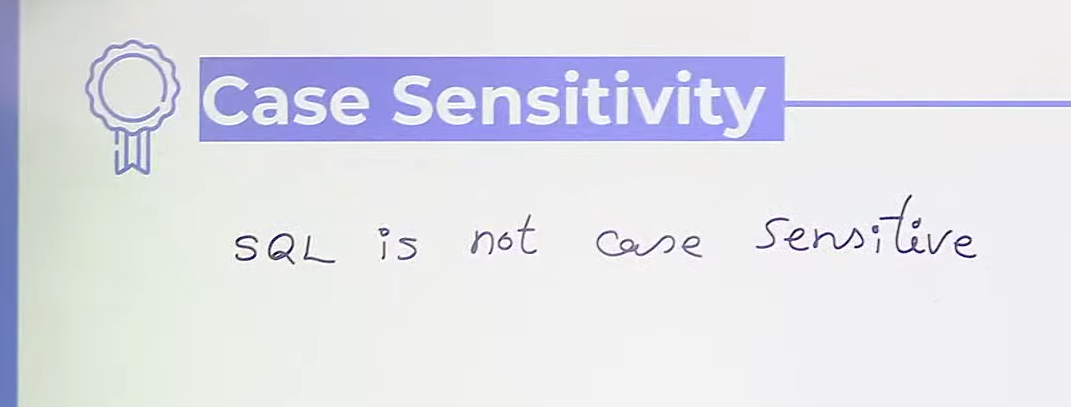 Case Sensitivity
SQL is not case sensitive